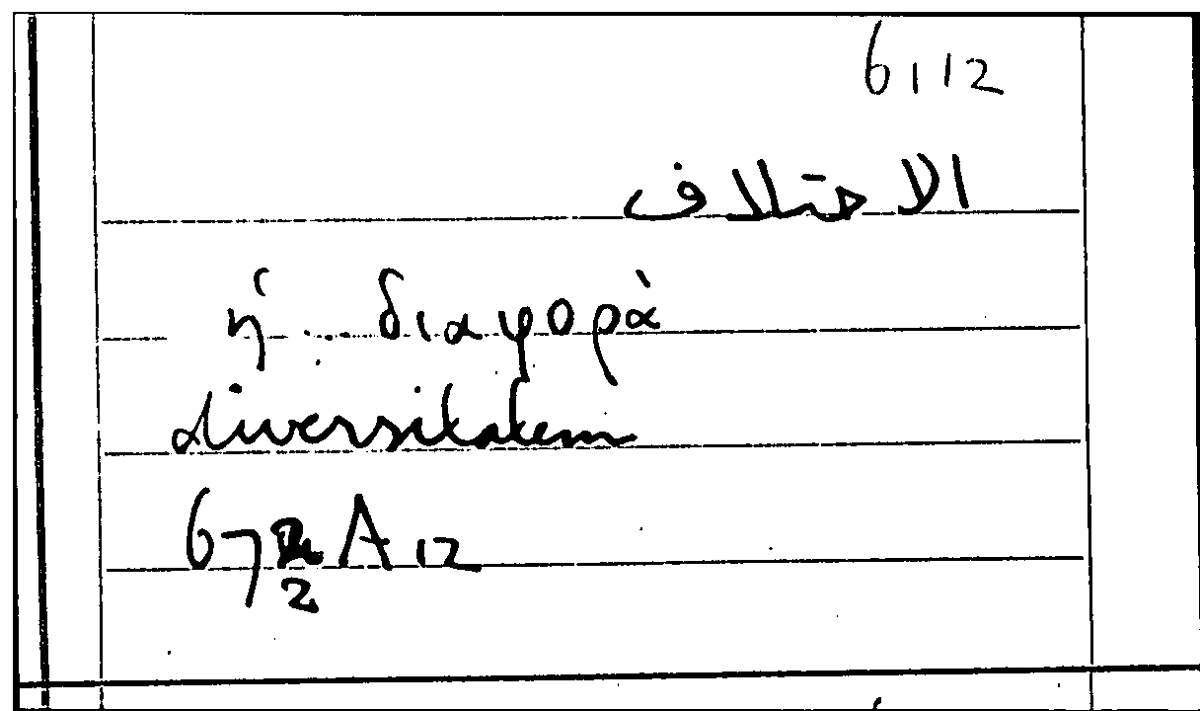 6,12
الاختلاف
ἡ ... διαφορὰ
diversitatem
672 A 12